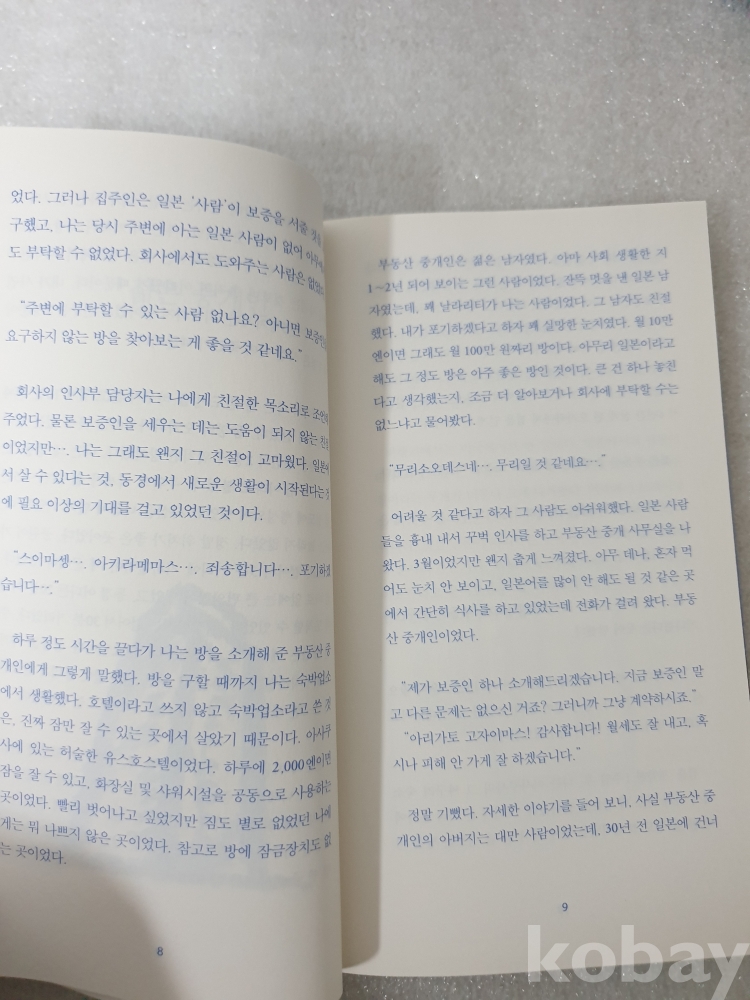 었다. 그러나 집주인은 일본 '사람'이 보증을 서줄 것을
구했고, 나는 당시 주변에 아는 일본 사람이 없어
도 부탁할 수 없었다. 회사에서도 도와주는 사람은 없었다
"주변에 부탁할 수 있는 사람 없나요? 아니면 보증인
요구하지 않는 방을 찾아보는 게 좋을 것 같네요."
회사의 인사부 담당자는 나에게 친절한 목소리로
주었다. 물론 보증인을 세우는 데는 도움이 되지 않는 친
이었지만…. 나는 그래도 왠지 그 친절이 고마웠다.
서 살 수 있다는 것, 동경에서 새로운 생활이 시작된다는
에 필요 이상의 기대를 걸고 있었던 것이다.
"스이마셍…. 아키라메마스…. 죄송합니다…. 포기하겠
습니다…."
하루 정도 시간을 끌다가 나는 방을 소개해 준 부동산 중
개인에게 그렇게 말했다. 방을 구할 때까지 나는 숙박업소
에서 생활했다. 호텔이라고 쓰지 않고 숙박업소라고 쓴 것
은, 진짜 잠만 잘 수 있는 곳에서 살았기 때문이다. 아사쿠
사에 있는 허술한 유스호스텔이었다. 하루에 2,000엔이면
잠을 잘 수 있고, 화장실 및 샤워시설을 공동으로 사용하는
곳이었다. 빨리 벗어나고 싶었지만 짐도 별로 없었던 나에
게는 뭐 나쁘지 않은 곳이었다. 참고로 방에 잠금장치도 없
는 곳이었다.
8
부동산 중개인은 젊은 남자였다. 아마 사회 생활한 지
1~2년 되어 보이는 그런 사람이었다. 잔뜩 멋을 낸 일본 남
자였는데, 꽤 날라리티가 나는 사람이었다. 그 남자도 친절
했다. 내가 포기하겠다고 하자 꽤 실망한 눈치였다. 월 10만
엔이면 그래도 월 100만 원짜리 방이다. 아무리 일본이라고
해도 그 정도 방은 아주 좋은 방인 것이다. 큰 건 하나 놓친
다고 생각했는지, 조금 더 알아보거나 회사에 부탁할 수는
없느냐고 물어봤다.
"무리소오데스네…. 무리일 것 같네요…."
어려울 것 같다고 하자 그 사람도 아쉬워했다. 일본 사람
들을 흉내 내서 꾸벅 인사를 하고 부동산 중개 사무실을 나
왔다. 3월이었지만 왠지 춥게 느껴졌다. 아무 데나, 혼자 먹
어도 눈치 안 보이고, 일본어를 많이 안 해도 될 것 같은 곳
에서 간단히 식사를 하고 있었는데 전화가 걸려 왔다. 부동
산 중개인이었다.
"제가 보증인 하나 소개해드리겠습니다. 지금 보증인 말
고 다른 문제는 없으신 거죠? 그러니까 그냥 계약하시죠."
"아리가토 고자이마스! 감사합니다! 월세도 잘 내고, 혹
시나 피해 안 가게 잘 하겠습니다."
정말 기뻤다. 자세한 이야기를 들어 보니, 사실 부동산 중
개인의 아버지는 대만 사람이었는데, 30년 전 일본에 건너
9
kobay